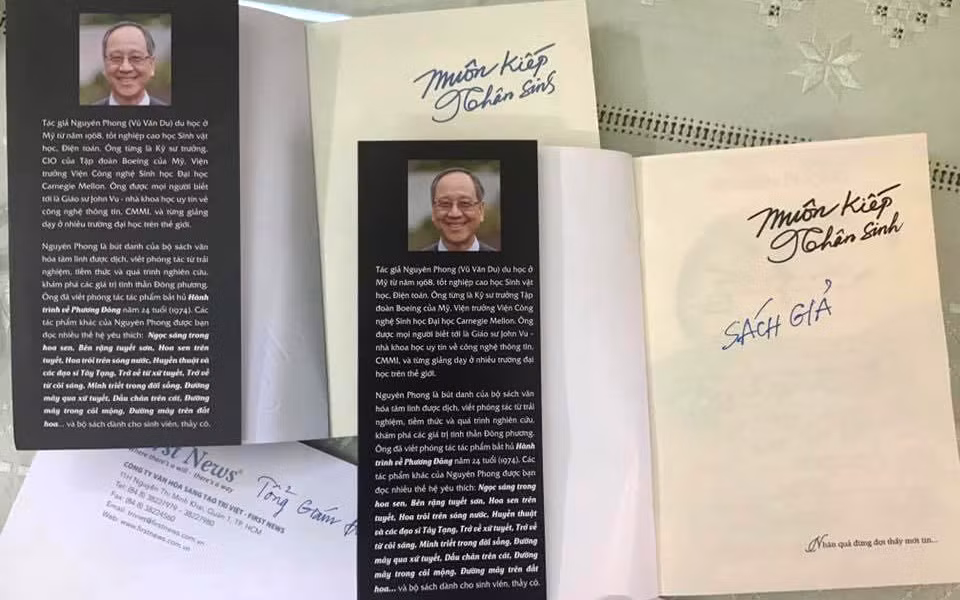 Tác giả Nguyên Phong (Vũ Văn Du) du học ở
Mỹ từ năm 1968, tốt nghiệp cao học Sinh vật
học, Điện toán. Ông từng là Kỹ sư trưởng,
CIO của Tập đoàn Boeing của Mỹ, Viện
trưởng Viện Công nghệ Sinh học Đại học
Carnegie Mellon. Ông được mọi người biết
tới là Giáo sư John Vu - nhà khoa học uy tín về
công nghệ thông tin, CMMI, và từng giảng
dạy ở nhiều trường đại học trên thế giới.
Nguyên Phong là bút danh của bộ sách văn
hóa tâm linh được dịch, viết phóng tác từ trải
nghiệm, tiềm thức và quá trình nghiên cứu,
khám phá các giá trị tinh thần Đông phương.
Ông đã viết phóng tác tác phẩm bất hủ Hành
trình về Phương Đông năm 24 tuổi (1974). Các
tác phẩm khác của Nguyên Phong được bạn
đọc nhiều thế hệ yêu thích: Ngọc sáng trong
hoa sen, Bên rặng tuyết sơn, Hoa sen trên
tuyết, Hoa trôi trên sóng nước, Huyền thuật và
các đạo sĩ Tây Tạng, Trở về từ xứ tuyết, Trở về
từ cõi sáng, Minh triết trong đời sống, Đường
mây qua xứ tuyết, Dấu chân trên cát, Đường
mây trong cõi mộng, Đường mây trên đất
hoa... và bộ sách dành cho sinh viên, thầy cô.
Muôn Kiếp
Nhân Sinh
First News
Where there's a will - there's a way
CÔNG TY VĂN HÓA SÁNG TẠO TRÍ VIỆT - FIRST NEWS
11H Nguyễn Thị Minh Khai, Quận 1, TP. HCM
Tel: (84.8) 38227979 - 38227980
Fax: (84.8) 38224560
Web: www.firstnews.com.vn
Tổng Giám
Tác giả Nguyên Phong (Vũ Văn Du) du học ở
Mỹ từ năm 1968, tốt nghiệp cao học Sinh vật
học, Điện toán. Ông từng là Kỹ sư trưởng, CIO của Tập
đoàn Boeing của Mỹ, Viện trưởng Viện Công
nghệ Sinh học Đại học Carnegie Mellon. Ông
được mọi người biết tới là Giáo sư John Vu -
nhà khoa học uy tín về công nghệ thông tin,
CMMI, và từng giảng dạy ở nhiều trường đại
học trên thế giới.
Nguyên Phong là bút danh của bộ sách văn
hóa tâm linh được dịch, viết phóng tác từ trải
nghiệm, tiềm thức và quá trình nghiên cứu,
khám phá các giá trị tinh thần Đông phương.
Ông đã viết phóng tác tác phẩm bất hủ Hành
trình về Phương Đông năm 24 tuổi (1974). Các
tác phẩm khác của Nguyên Phong được bạn
đọc nhiều thế hệ yêu thích: Ngọc sáng trong
hoa sen, Bên rặng tuyết sơn, Hoa sen trên
tuyết, Hoa trôi trên sóng nước, Huyền thuật
và các đạo sĩ Tây Tạng, Trở về từ xứ tuyết, Trở về
từ cõi sáng, Minh triết trong đời sống, Đường
mây qua xứ tuyết, Dấu chân trên cát, Đường
mây trong cõi mộng, Đường mây trên đất
hoa... và bộ sách dành cho sinh viên, thầy cô.
Muôn Kiếp
Nhân Sinh
SÁCH GIẢ
Nhân quả đừng đợi thấy mới tin...